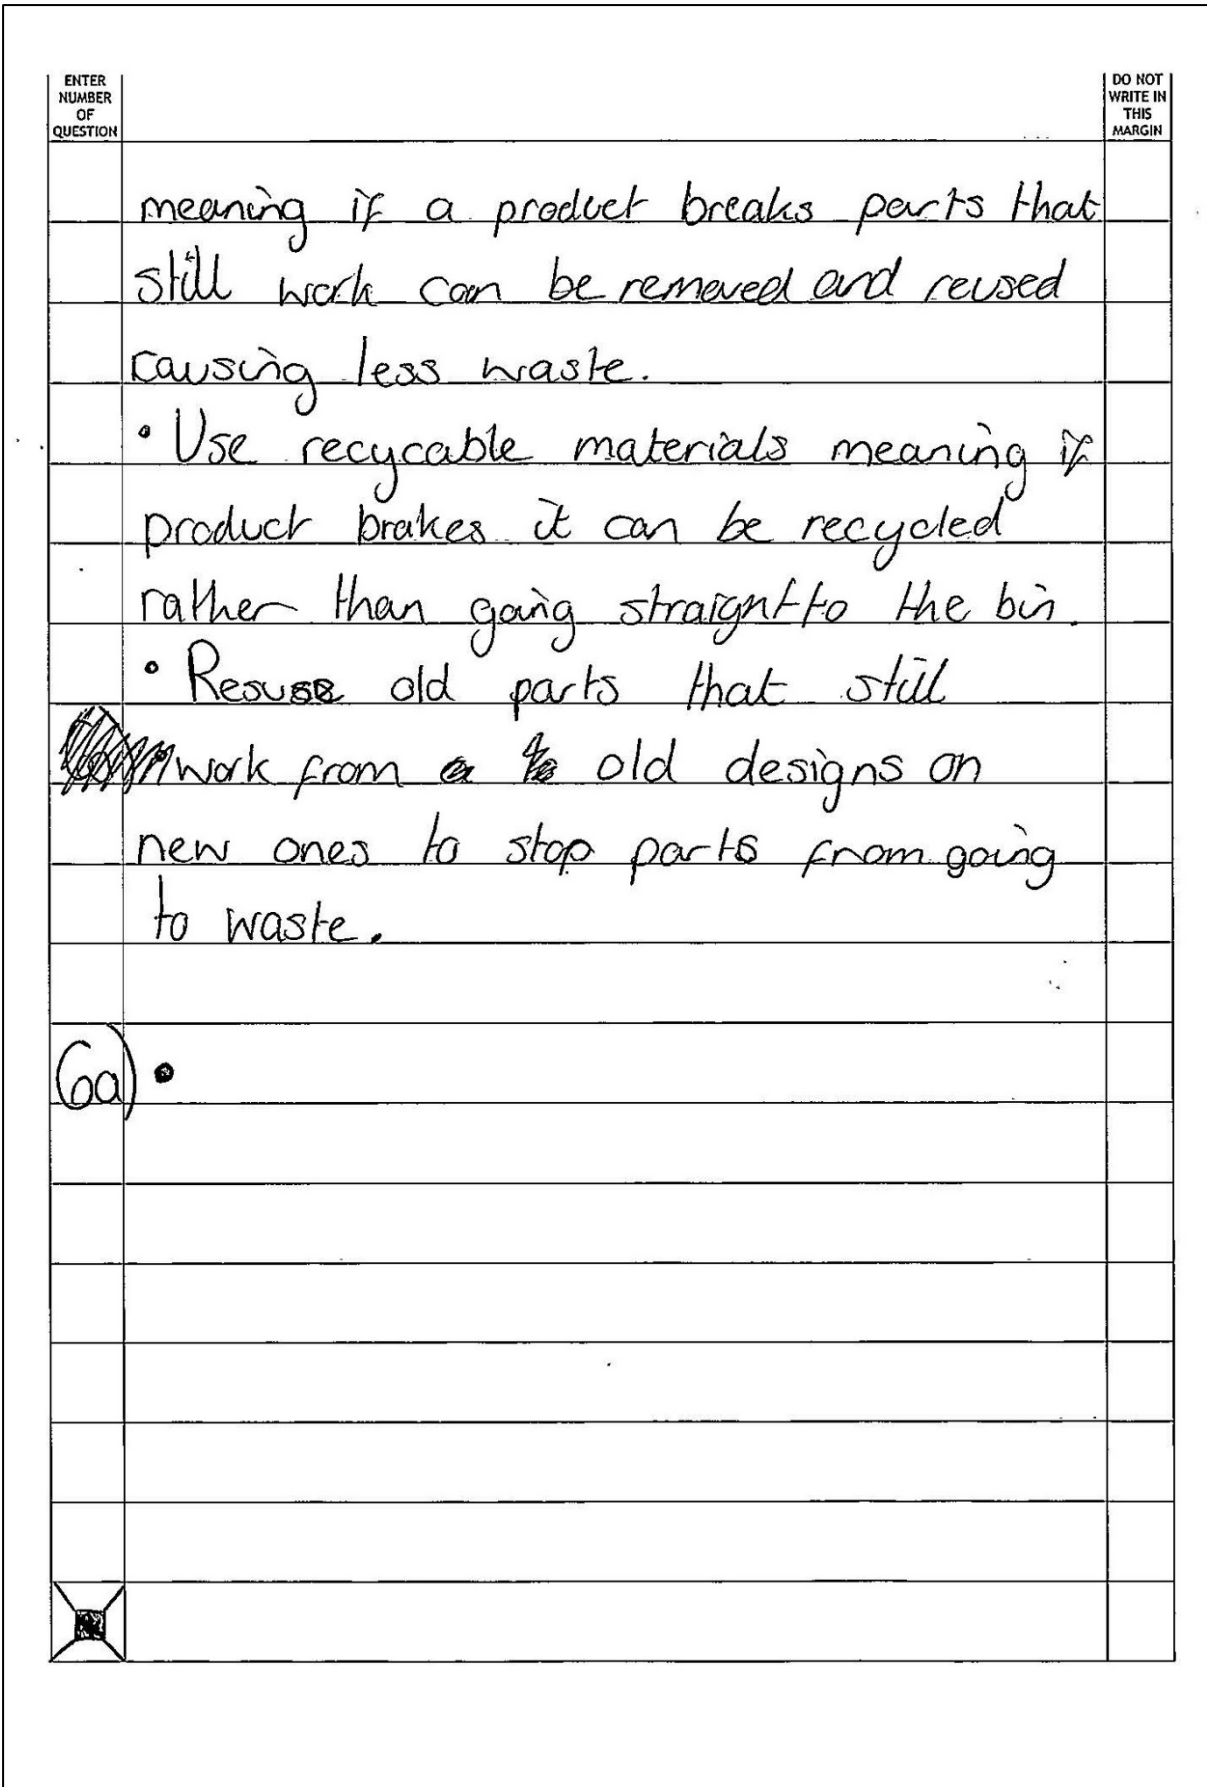 ENTER
NUMBER
OF
QUESTION
DO NOT
WRITE IN
THIS
MARGIN
meaning if a product breaks parts that
still work can be removed and reused
causing less waste.
• Use recycable materials meaning if
product brakes it can be recycled
rather than going straight to the bin.
• Resuse old parts that still
work from old designs on
new ones to stop parts from going
to waste.
6a) •